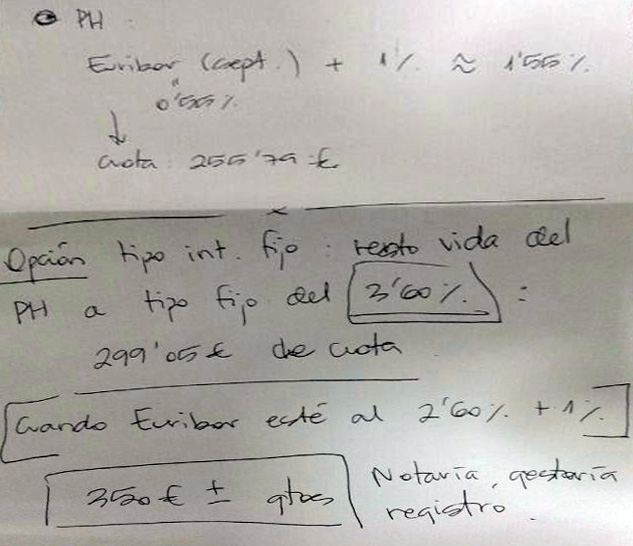 PH :
Euribor (sept.) + 1% ≈ 1'55%
0'55%
↓
Cuota : 255'79 €
Opción tipo int. fijo : resto vida del
PH a tipo fijo del 3'60% :
299'05 € de cuota
Cuando Euribor esté al 2'60% + 1%
350 € ± gtos
Notaría, gestoría
registro.